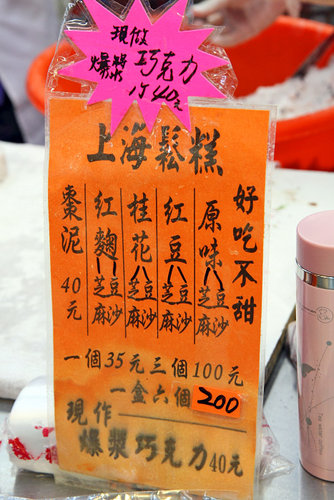 現做
爆漿 巧克力
1个40元
上海鬆糕
好吃不甜
原味〈芝麻 豆沙
紅豆〈芝麻 豆沙
桂花〈芝麻 豆沙
紅麴〈芝麻 豆沙
棗泥 40元
一個35元三個100元
一盒六個 200
現作
爆漿巧克力40元